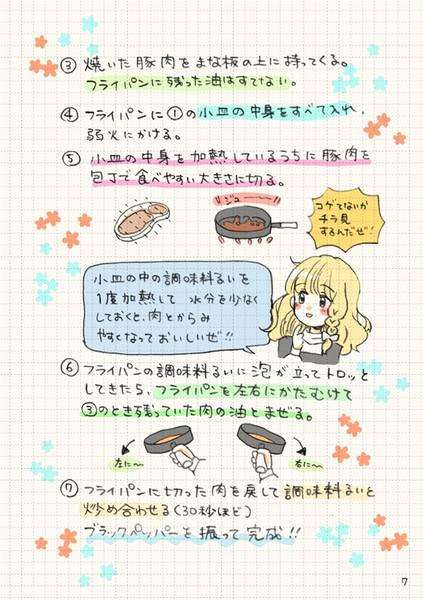 ③ 焼いた豚肉をまな板の上に持ってくる。
フライパンに残った油はすてない。
④ フライパンに①の小皿の中身をすべて入れ、
弱火にかける。
⑤ 小皿の中身を加熱しているうちに豚肉を
包丁で食べやすい大きさに切る。
ジュ〜〜!!
コゲてないか
チラ見
するんだぜ!
小皿の中の調味料るいを
1度加熱して 水分を少なく
しておくと、肉とからみ
やすくなっておいしいぜ!!
⑥ フライパンの調味料るいに泡が立ってトロッと
してきたら、フライパンを左右にかたむけて
③のとき残っていた肉の油とまぜる。
左に〜
右に〜
⑦ フライパンに切った肉を戻して調味料るいと
炒め合わせる(30秒ほど)
ブラックペッパーを振って完成!!
7